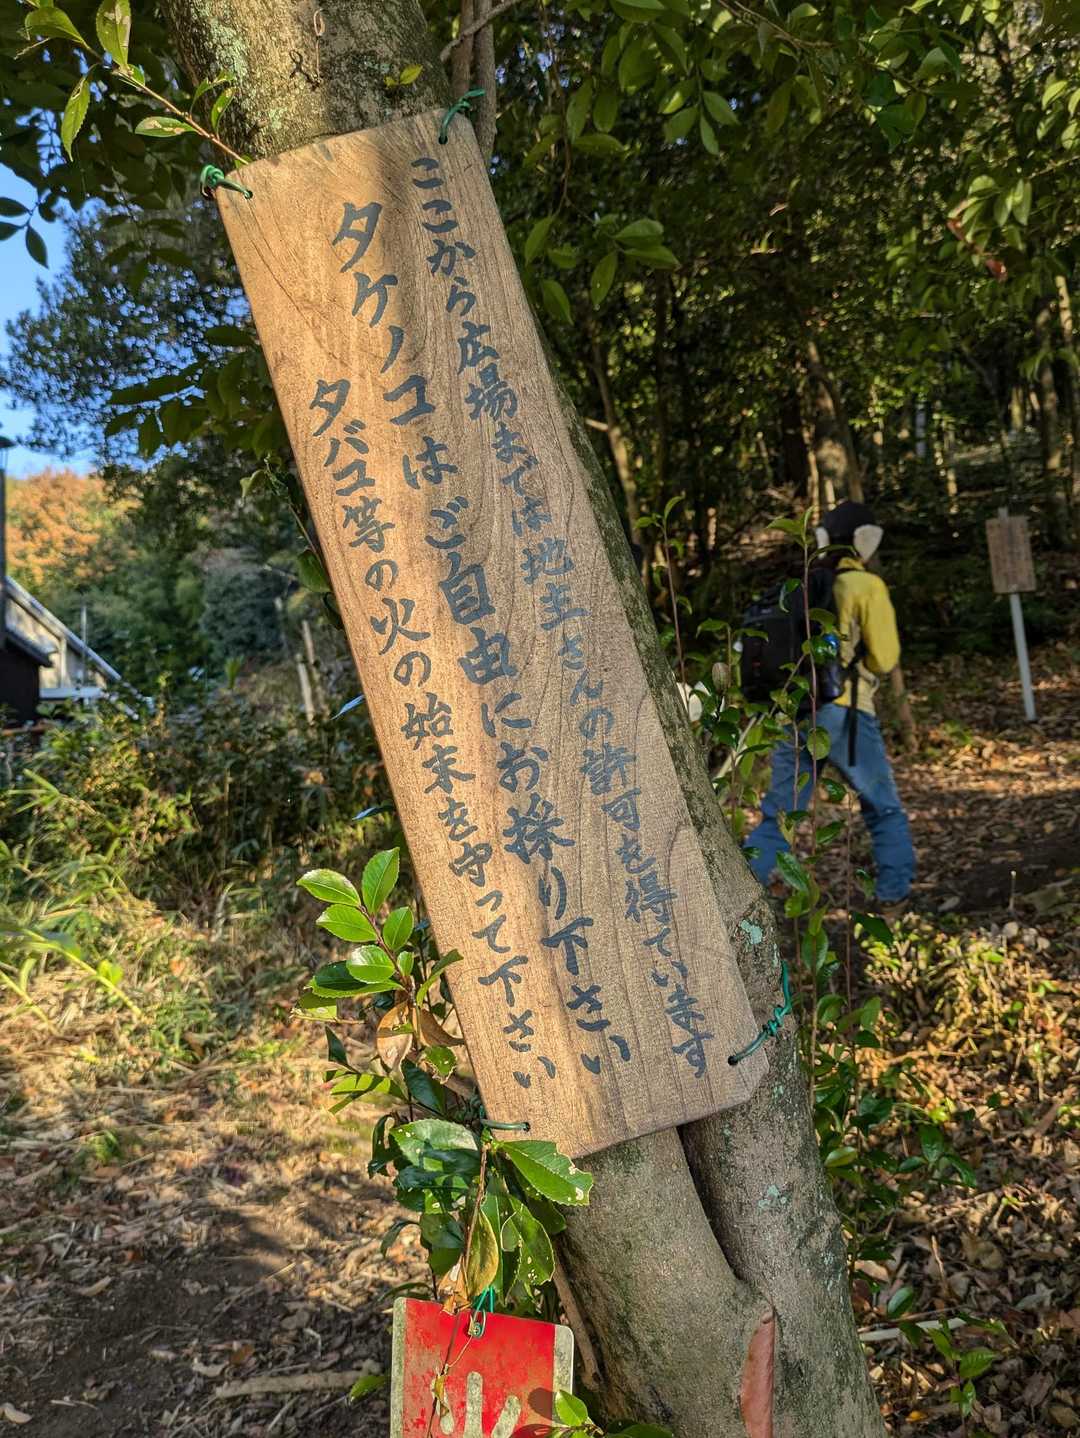 ここから広場までは地主さんの許可を得ています
タケノコはご自由にお採り下さい
タバコ等の火の始末を守って下さい